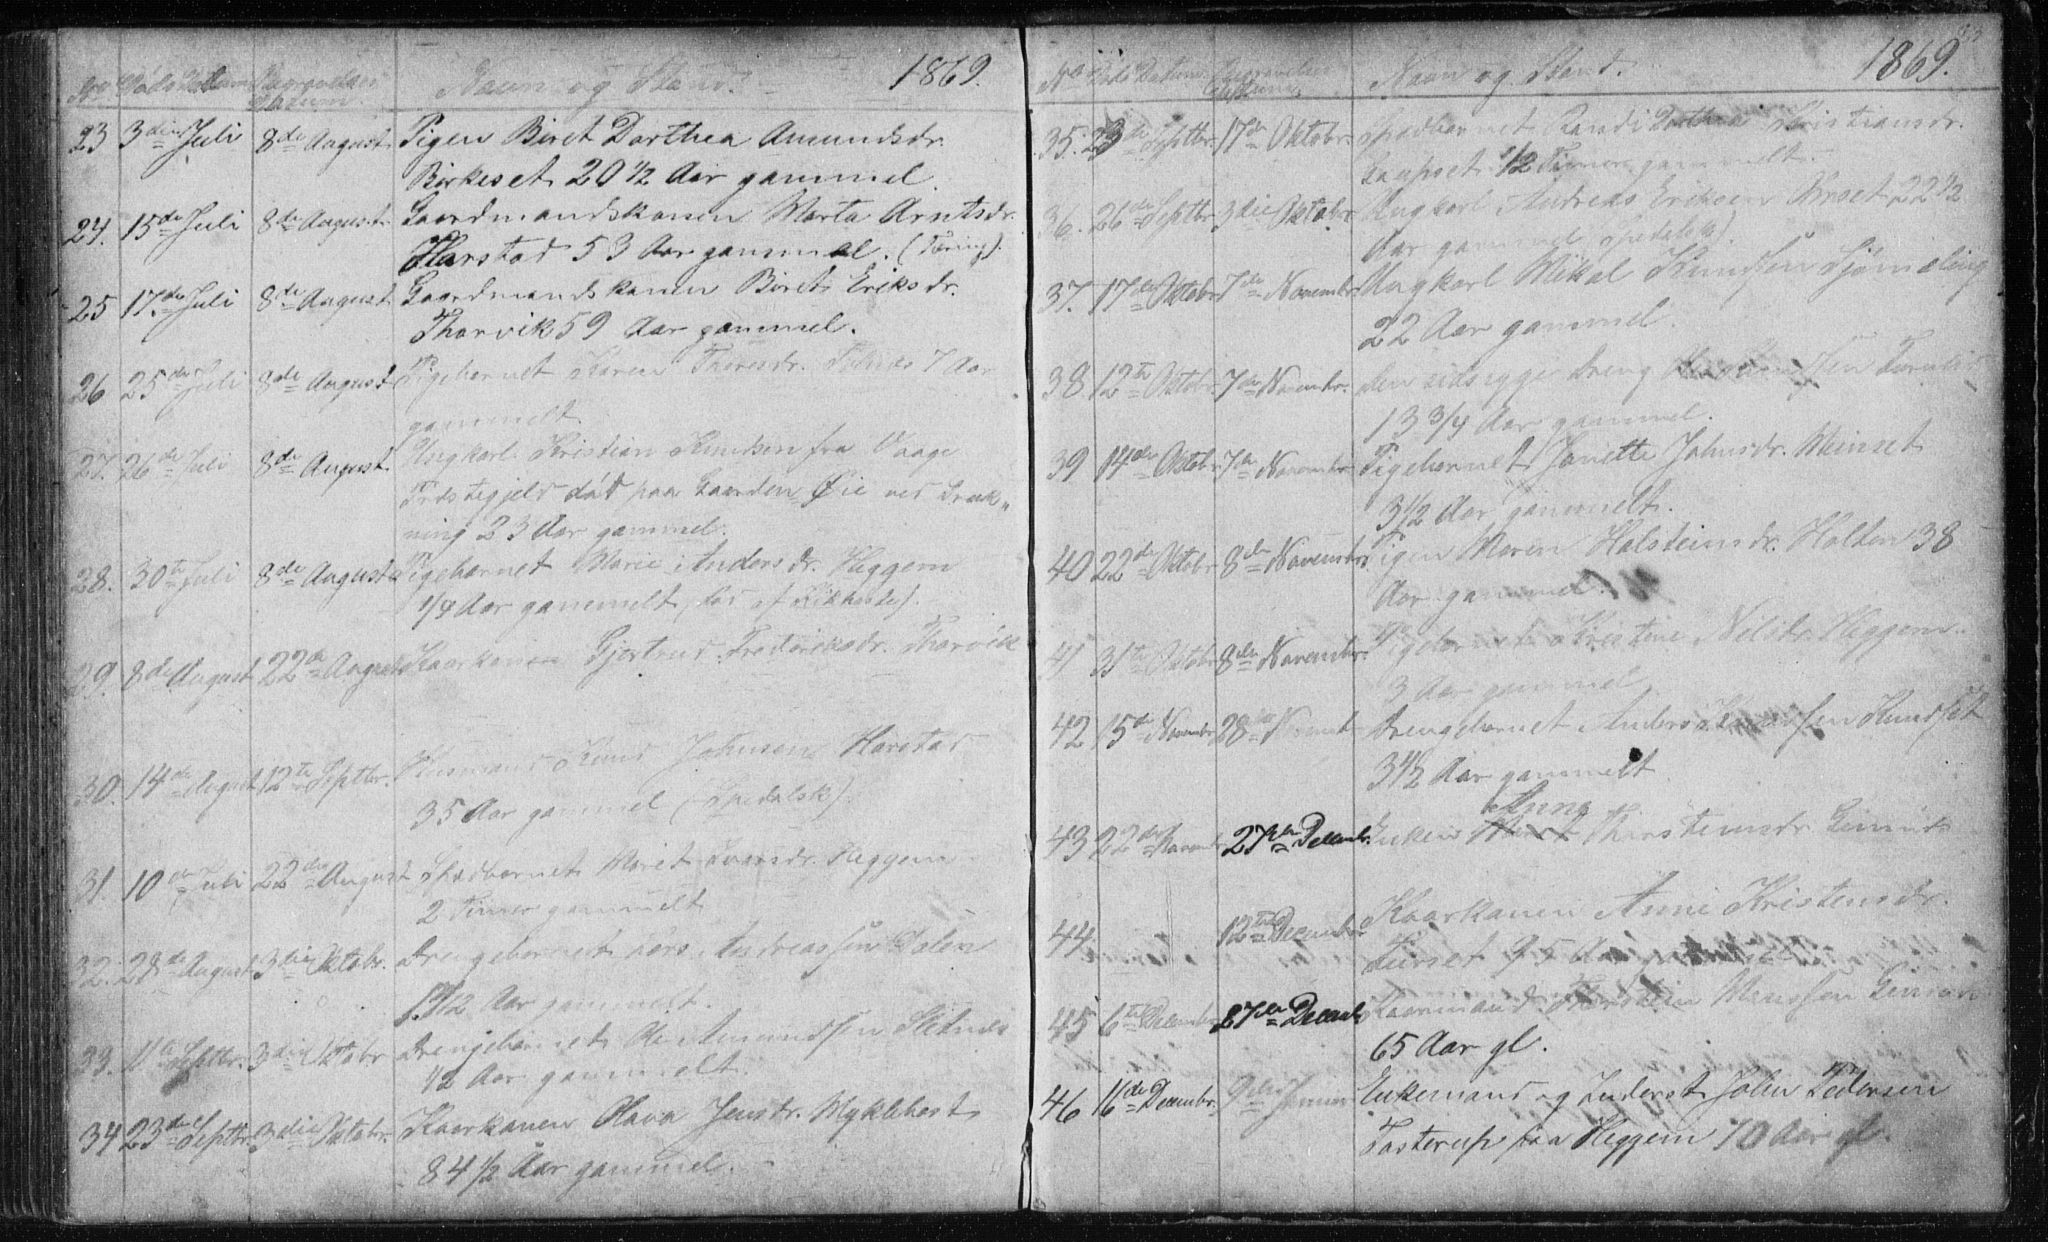 1869.
No Døds Datum Begravelses Datum. Navn og Stand.
23 3die Juli 8de August Pigen Biret Dorthea Amundsdr.
Birkeset 20 1/2 Aar gammel.
24. 15de Juli 8de August Gaardmandskonen Marta Arntsdr.
Harstad 53 Aar gammel. (Tæring).
25 17de Juli 8de August Gaardmandskonen Biret Eriksdr.
Thorvik 59 Aar gammel.
26 25de Juli 8de August Pigebarnet Karen 7 Aar
gammelt.
27. 26de Juli 8de August Ungkarl Kristian Knudsen fra Vaage
Præstegjeld død paa Gaarden Øie ved Druk„
ning 23 Aar gammel.
28. 30te Juli 8de August Pigebarnet Marie Andersdr. Heggem
1/4 Aar gammelt, (død af Kikhoste).
29. 8de August 22de August Kaarkonen Gjertrud Frederiksdr. Thorvik
30. 14de August 12te Septbr. Husmand Knud Johnsen Harstad
35 Aar gammel (Spedalsk).
31. 10de Juli 22de August Spædbarnet Marit Iversdr. Heggem
2 Timer gammelt
32. 28de August 3die Oktobr. Drengebarnet Lars Andreassen Dalen
1 1/2 Aar gammelt.
33. 11te Septbr. 3die Oktobr Drengebarnet Ole Amundsen
1/2 Aar gammelt.
34 23de Septbr. 3die Oktobr. Kaarkonen Olava Jensdr. Myklebost
84 1/2 Aar gammel.
1869.
No Døds Datum Begravelses Datum. Navn og Stand.
35. 23de Septbr. 17de Oktobr. Spædbarnet Randi Dorthea Kristiansdr.
1/2 Time gammelt.
36. 26de Septbr. 3die Oktobr. Ungkarl Andreas Eriksen 22 1/2
Aar gammel (Spedalsk).
37. 17de Oktobr 7de Novembr. Ungkarl Mikal Knudsen Sjømæling
22 Aar gammel.
38. 12te Oktobr. 7de Novembr. den sindsyge Dreng
13 3/4 Aar gammel.
39 14de Oktobr 7de Novembr. Pigebarnet Johnsdr.
3 1/2 Aar gammelt.
40 22de Oktobr 8de Novembr. Pigen Maren Halsteinsdr. Holten 38
Aar gammel.
41 31te Oktobr 8de Novembr. Pigebarnet Kristine Nilsdr. Heggem
3 Aar gammel
42 15de Novembr 28de Novemb Drengebarnet Anders Knudset
3 1/2 Aar gammelt
Anne
43 22de Novembr 27de Decembr. Enken Thorsteinsdr. Gimnæs
44. 12te Decembr. Kaarkonen Anne Kristensdr.
95 Aar
45 6te Decembr 27de Decemb Kaarmand Thorstein Gimnæs
65 Aar gl.
46 16de Decembr. 9de Januar Enkemand og Inderst John Pedersen
Tasterup paa Heggem 70 Aar gl.